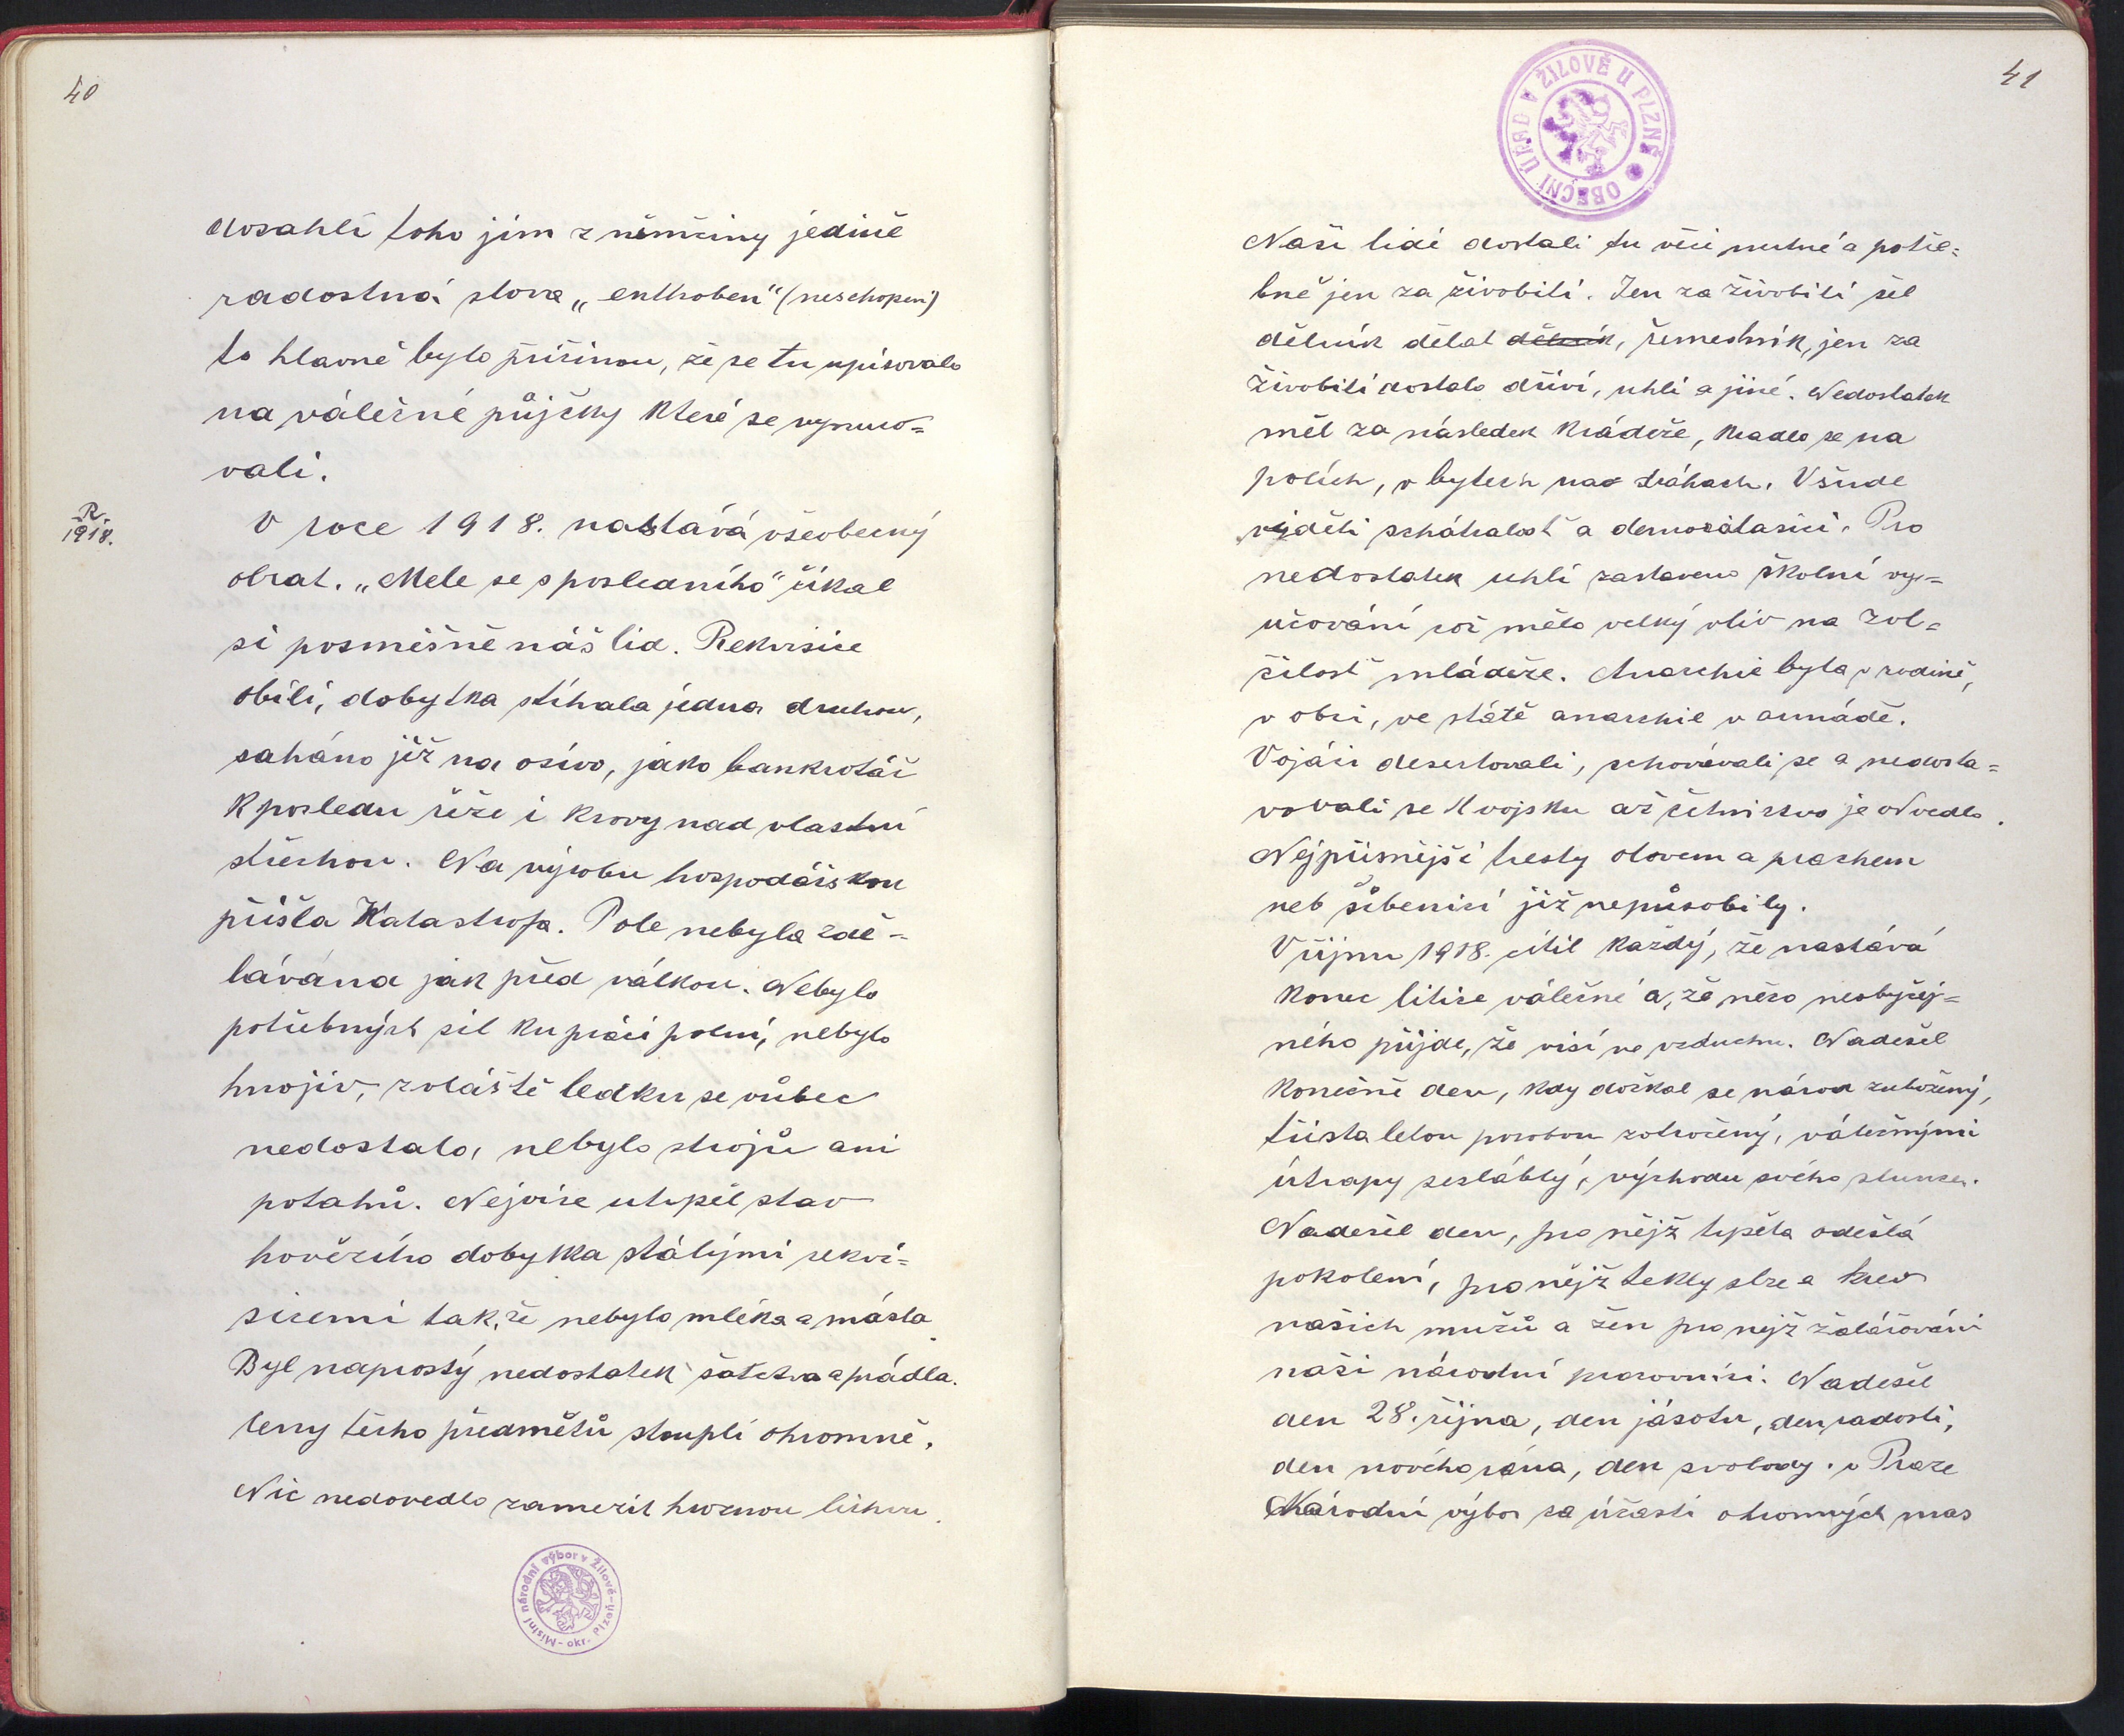 40
dosahli toho jim z němčiny jedině
radostná slova „enthoben" (neschopen)
to hlavně bylo příčinou, že se tu upisovalo
na válečné půjčky které se vynuco=
vali.
R.
1918.
V roce 1918. nastává všeobecný
obrat. „Mele se s posledního" říkal
si posměšně náš lid. Rekvisice
obilí, dobytka stíhala jedna druhou,
saháno již na osivo, jako bankrotář
k posledu řeže i krovy nad vlastní
střechou. Na výrobu hospodářskou
přišla Katastrofa. Pole nebyla zdě-
lávána jak před válkou. Nebylo
potřebných sil ku práci polní, nebylo
hnojiv, zvláště ledku se vůbec
nedostalo, nebylo strojů ani
potahů. Nejvíce utrpěl stav
hovězího dobytka stálými rekvi=
sicemi tak, že nebylo mléka a másla.
Byl naprostý nedostatek šatstva a prádla.
Ceny těcho předmětů stoupli ohromně.
Nic nedovedlo zamezit hroznou lichvu.
Místní národní výbor v Žilově - okr. Plzeň -
41
OBECNÍ ÚŘAD V ŽILOVĚ U PLZNĚ
Naši lidé dostali tu věci nutné a potře=
bné jen za živobití. Jen za živobití šel
dělník dělat dělník, řemeslník, jen za
živobití dostalo dříví, uhlí a jiné. Nedostatek
měl za následek krádeže, kradlo se na
polích, v bytech na drahách. Všude
viděti schátralost a demoralasici. Pro
nedostatek uhlí zastaveno školní vy=
učování což mělo velký vliv na zvl=
čilost mládeže. Anarchie byla v rodině,
v obci, ve státě anarchie v armádě.
Vojáci desertovali, schovávali se a nedosta=
vovali se k vojsku až četnictvo je odvedlo.
Nejpřísnější tresty olovem a prachem
neb šibenicí již nepůsobily.
V říjnu 1918. cítil každý, že nastává
konec litice válečné a, že něco neobyčej=
ného příjde, že visí ve vzduchu. Nadešel
konečně den, kdy dočkal se národ zubožený,
třista letou porobou zotročený, válečnými
útrapy seslábly, východu svého slunce.
Nadešel den, pro nějž trpěla odešlá
pokolení, pro nějž tekly slze a krev
našich mužů a žen pro nejž žalářováni
naši národní pracovníci. Nadešel
den 28. října, den jásotu, den radosti,
den nového rána, den svobody. v Praze
Národní výbor za účasti ohromných mas